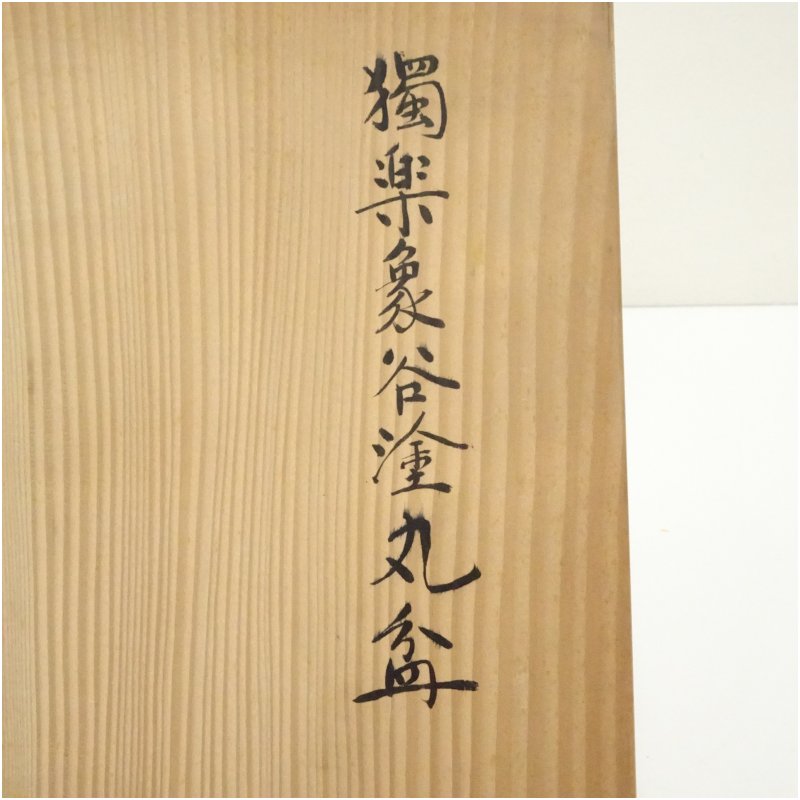 獨楽象谷塗丸盆